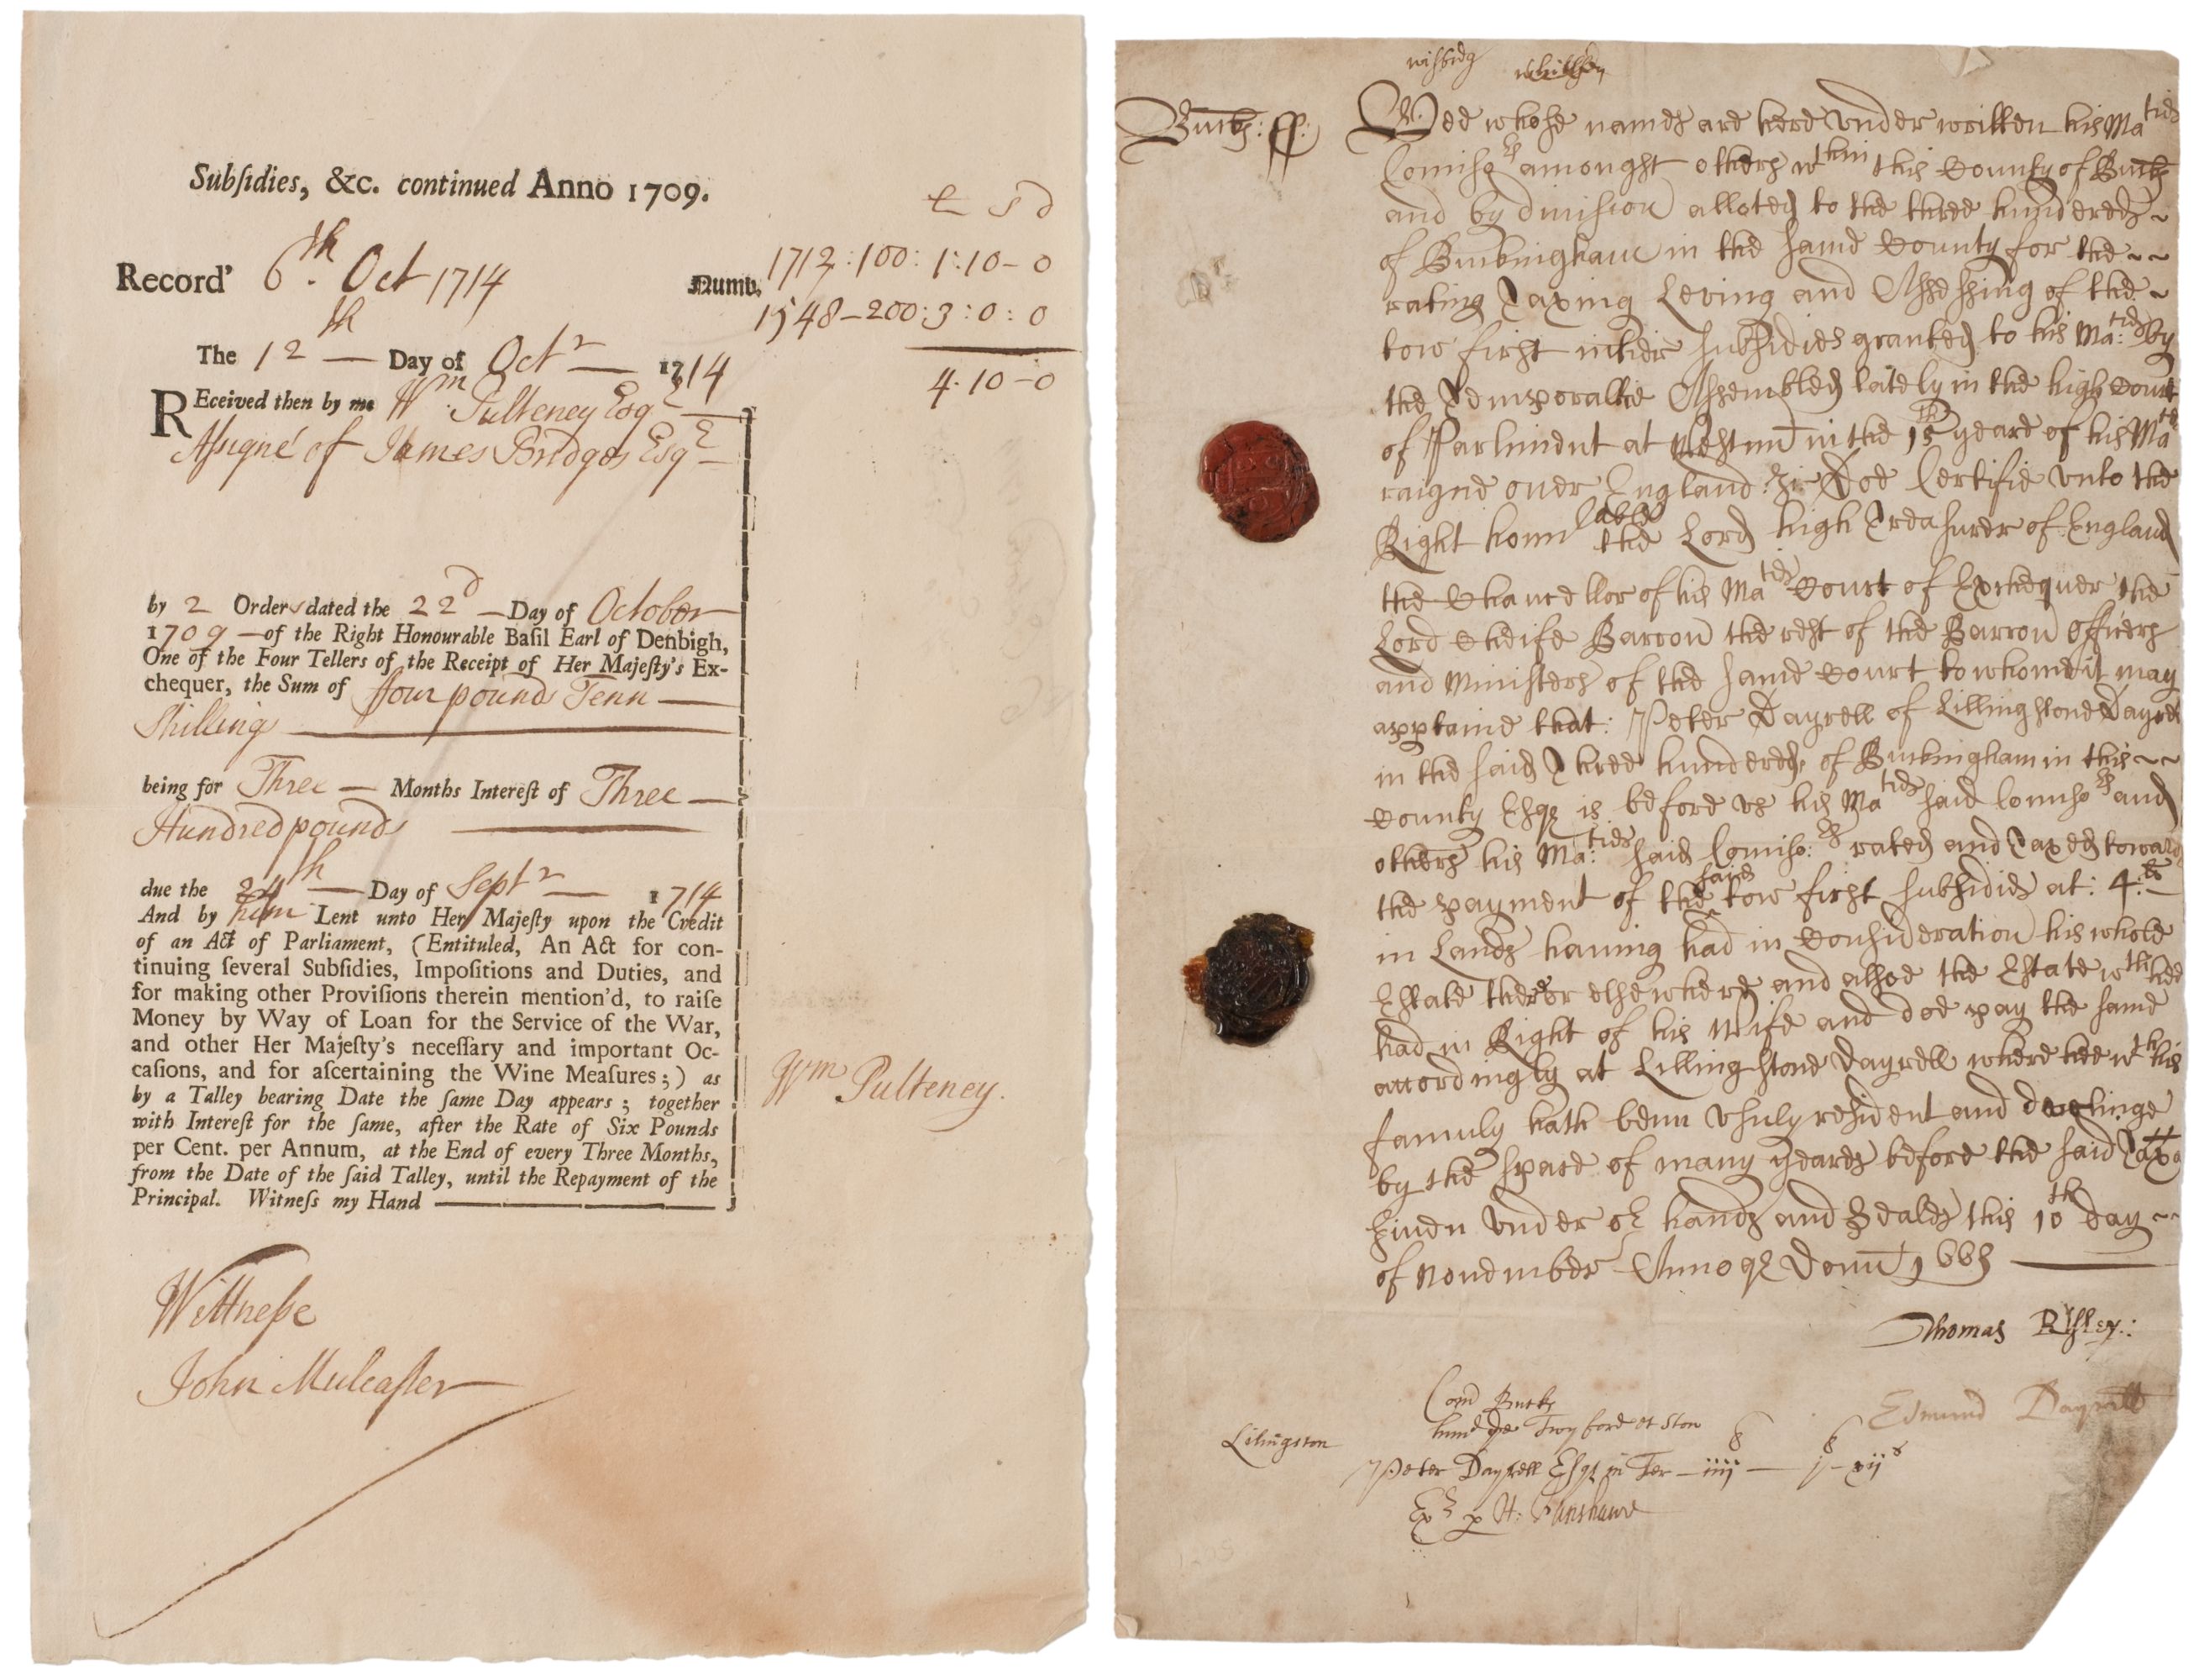 Subſidies, &c. continued Anno 1709.
£ s d
Record' 6th. Oct 1714
Numb. 1712:100:1:10-0
1548-200:3:0:0
4-10-0
The 12th — Day of Octr — 1714
REceived then by me Wm Pulteney Esqr
Aſsigné of James Bridges Esqr
by 2 Orders dated the 22d — Day of October
1709 — of the Right Honourable Baſil Earl of Denbigh,
One of the Four Tellers of the Receipt of Her Majeſty's Ex-
chequer, the Sum of ffour pounds Tenn —
Shilling
being for Three — Months Intereſt of Three —
Hundred pounds
due the 24th — Day of Septr — 1714
And by him Lent unto Her Majeſty upon the Credit
of an Act of Parliament, (Entituled, An Act for con-
tinuing ſeveral Subſidies, Impoſitions and Duties, and
for making other Proviſions therein mention'd, to raiſe
Money by Way of Loan for the Service of the War,
and other Her Majeſty's neceſſary and important Oc-
caſions, and for aſcertaining the Wine Meaſures;) as
by a Talley bearing Date the ſame Day appears; together
with Intereſt for the ſame, after the Rate of Six Pounds
per Cent. per Annum, at the End of every Three Months,
from the Date of the ſaid Talley, until the Repayment of the
Principal. Witneſs my Hand
Wm Pulteney.
Wittneſse
John Mulcaſter
Bucks: ss:
Wee whose names are here vnder written his Maties
Comisrs amongst others wthin this County of Bucks
and by diuision alloted to the three hundereds ~
of Buckingham in the same County for the ~ ~
rating Taxing Leving and Assessing of the ~
tow first intier subsidies granted to his Ma:ties by
the Temporallie Assembled lately in the high Court
of Parliment at Westmr in the 15th yeare of his Maties
raigne ouer England &c Doe Certifie vnto the
Right honnlable the Lord high Treasurer of England
the Chancellor of his Maties Court of Exchequer the
Lord Cheife Barron the rest of the Barron officers
and Ministers of the same Court to whome it may
apptaine that: Peter Dayrell of Lillingstone Dayrell
in the said Three hundereds of Buckingham in this ~ ~
County Esqr is before vs his Maties said Comisrs and
others his Ma:ties said Comiso:rs rated and Taxed towards
the payment of the said tow first subsidies at: 4:li
in Lands hauing had in Consideration his whole
Estate there or elsewhere and allsoe the Estate wch hee
had in Right of his Wife and doe pay the same
accordingly at Lillingstone Dayrell where hee wth his
famuly hath benn vsuly resident and dwelinge
by the space of many yeares before the said Taxa
Giuen vnder or hands and Seales this 10th day ~
of Nouember Annoqe Domi 1663
Thomas Riſley.:
Edmund Dayrell
Com Bucks
hund de Twyford et Ston
Lilingston
Peter Dayrell Esqr in Ter — iiij —
Exr p H: Fanshawe